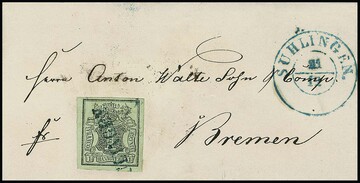 SUHLINGEN.
Herrn Anton Walte Sohn & Comp
fr
Bremen